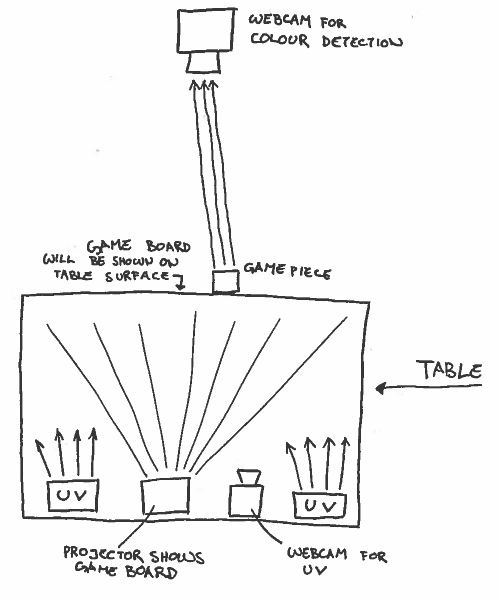 WEBCAM FOR
COLOUR DETECTION
GAME BOARD
WILL BE SHOWN ON
TABLE SURFACE
GAME PIECE
TABLE
UV
UV
PROJECTOR SHOWS
GAME BOARD
WEBCAM FOR
UV